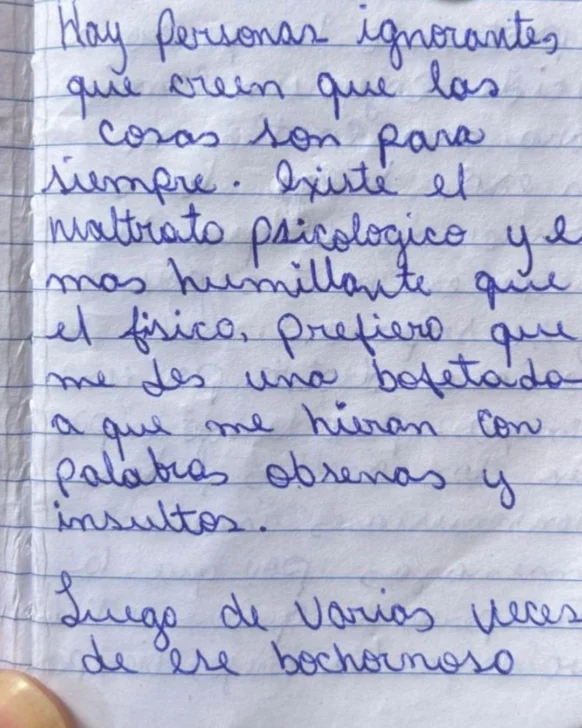 Hay personas ignorantes
que creen que las
cosas son para
siempre. Existe el
maltrato psicologico y e
mas humillante que
el fisico, prefiero que
me des una bofetada
a que me hieran con
palabras obsenas y
insultos.
Luego de varias veces
de ese bochornoso